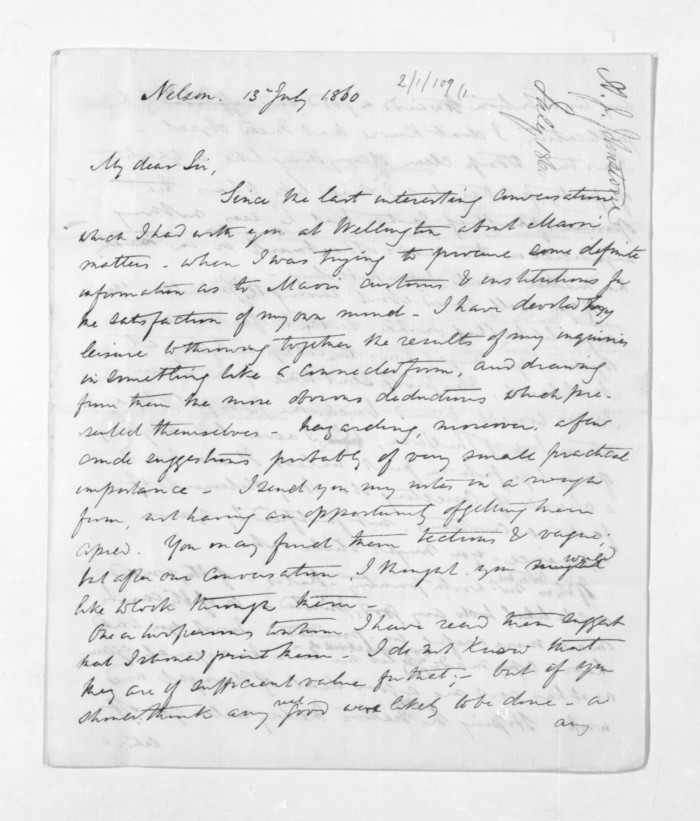 2/1/109/1.
A. J. Johnston
July 1860
Nelson. 13th July 1860
My dear Sir,
Since the last interesting conversation
which I had with you at Wellington about Maori
matters - when I was trying to procure some definite
information as to Maori customs & institutions for
the satisfaction of my own mind - I have devoted my
leisure to throwing together the results of my inquiries
in something like a connected form, and drawing
from them the more obvious deductions which pre-
sented themselves - hazarding, moreover, a few
crude suggestions probably of very small practical
importance - I send you my notes in a rough
form, not having an opportunity of getting them
copied. You may find them tedious & vague;
but after our conversation, I thought you would
like to look through them -
One or two persons to whom I have read them suggest
that I should print them - I do not know that
they are of sufficient value for that; - but if you
should think any real good were likely to be done - or
any